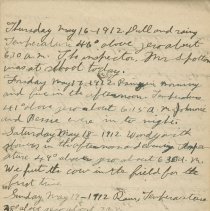 Thursday May 16-1912 Dull and rainy
Temperature 46° above zero about
6.30 A.M. The inspector Mr Spotton
was at school today.
Friday May 17-1912
and fine in the afternoon. Temperature
41° above zero about 6.15 A.M.
and Bessie were in to night.
Saturday May 18-1912 Windy with
showers in the afternoon and evening.
49° above zero about 6.30 A.M.
We put the cow in the field for the
first time.
Sunday May 19-1912 Temperature
above zero about